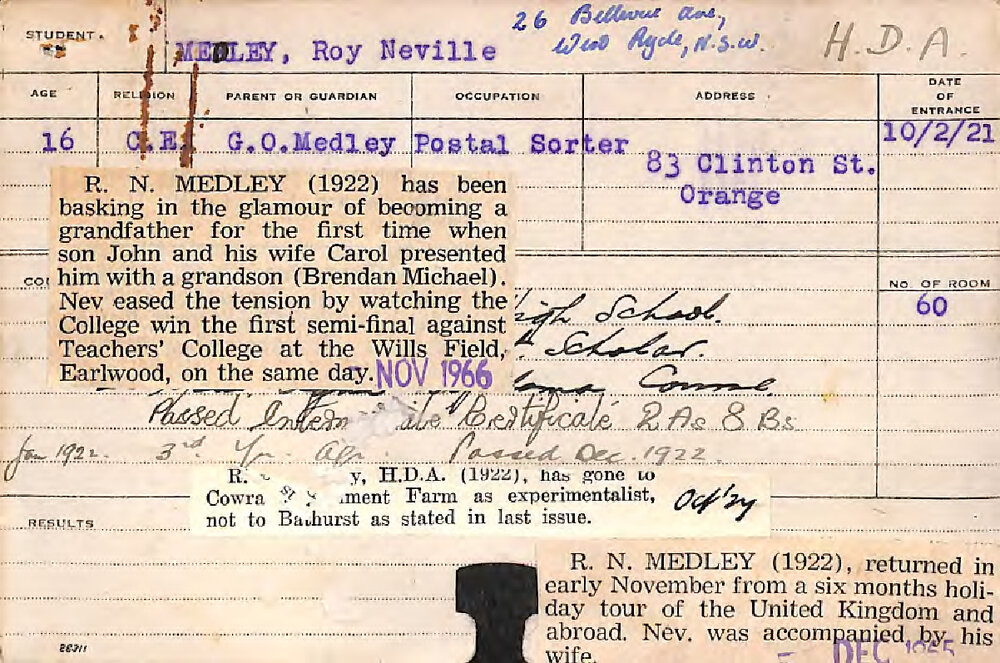 STUDENT.
MEDLEY, Roy Neville
26 Bellevue Ave,
West Ryde, N.S.W.
H.D.A.
AGE
RELIGION
PARENT OR GUARDIAN
OCCUPATION
ADDRESS
DATE
OF
ENTRANCE
16 C.E. G.O.Medley Postal Sorter
83 Clinton St.
Orange
10/2/21
R. N. MEDLEY (1922) has been
basking in the glamour of becoming a
grandfather for the first time when
son John and his wife Carol presented
him with a grandson (Brendan Michael).
Nev eased the tension by watching the
College win the first semi-final against
Teachers' College at the Wills Field,
Earlwood, on the same day. NOV 1966
NO. OF ROOM
60
High School.
Scholar.
Course
Passed Certificate 2 As 8 Bs
Jan 1922. 3rd Yr. Agr. Passed Dec. 1922.
R. y, H.D.A. (1922), has gone to
Cowra ment Farm as experimentalist,
not to Bathurst as stated in last issue.
RESULTS
R. N. MEDLEY (1922), returned in
early November from a six months holi-
day tour of the United Kingdom and
abroad. Nev. was accompanied by his
wife.
DEC